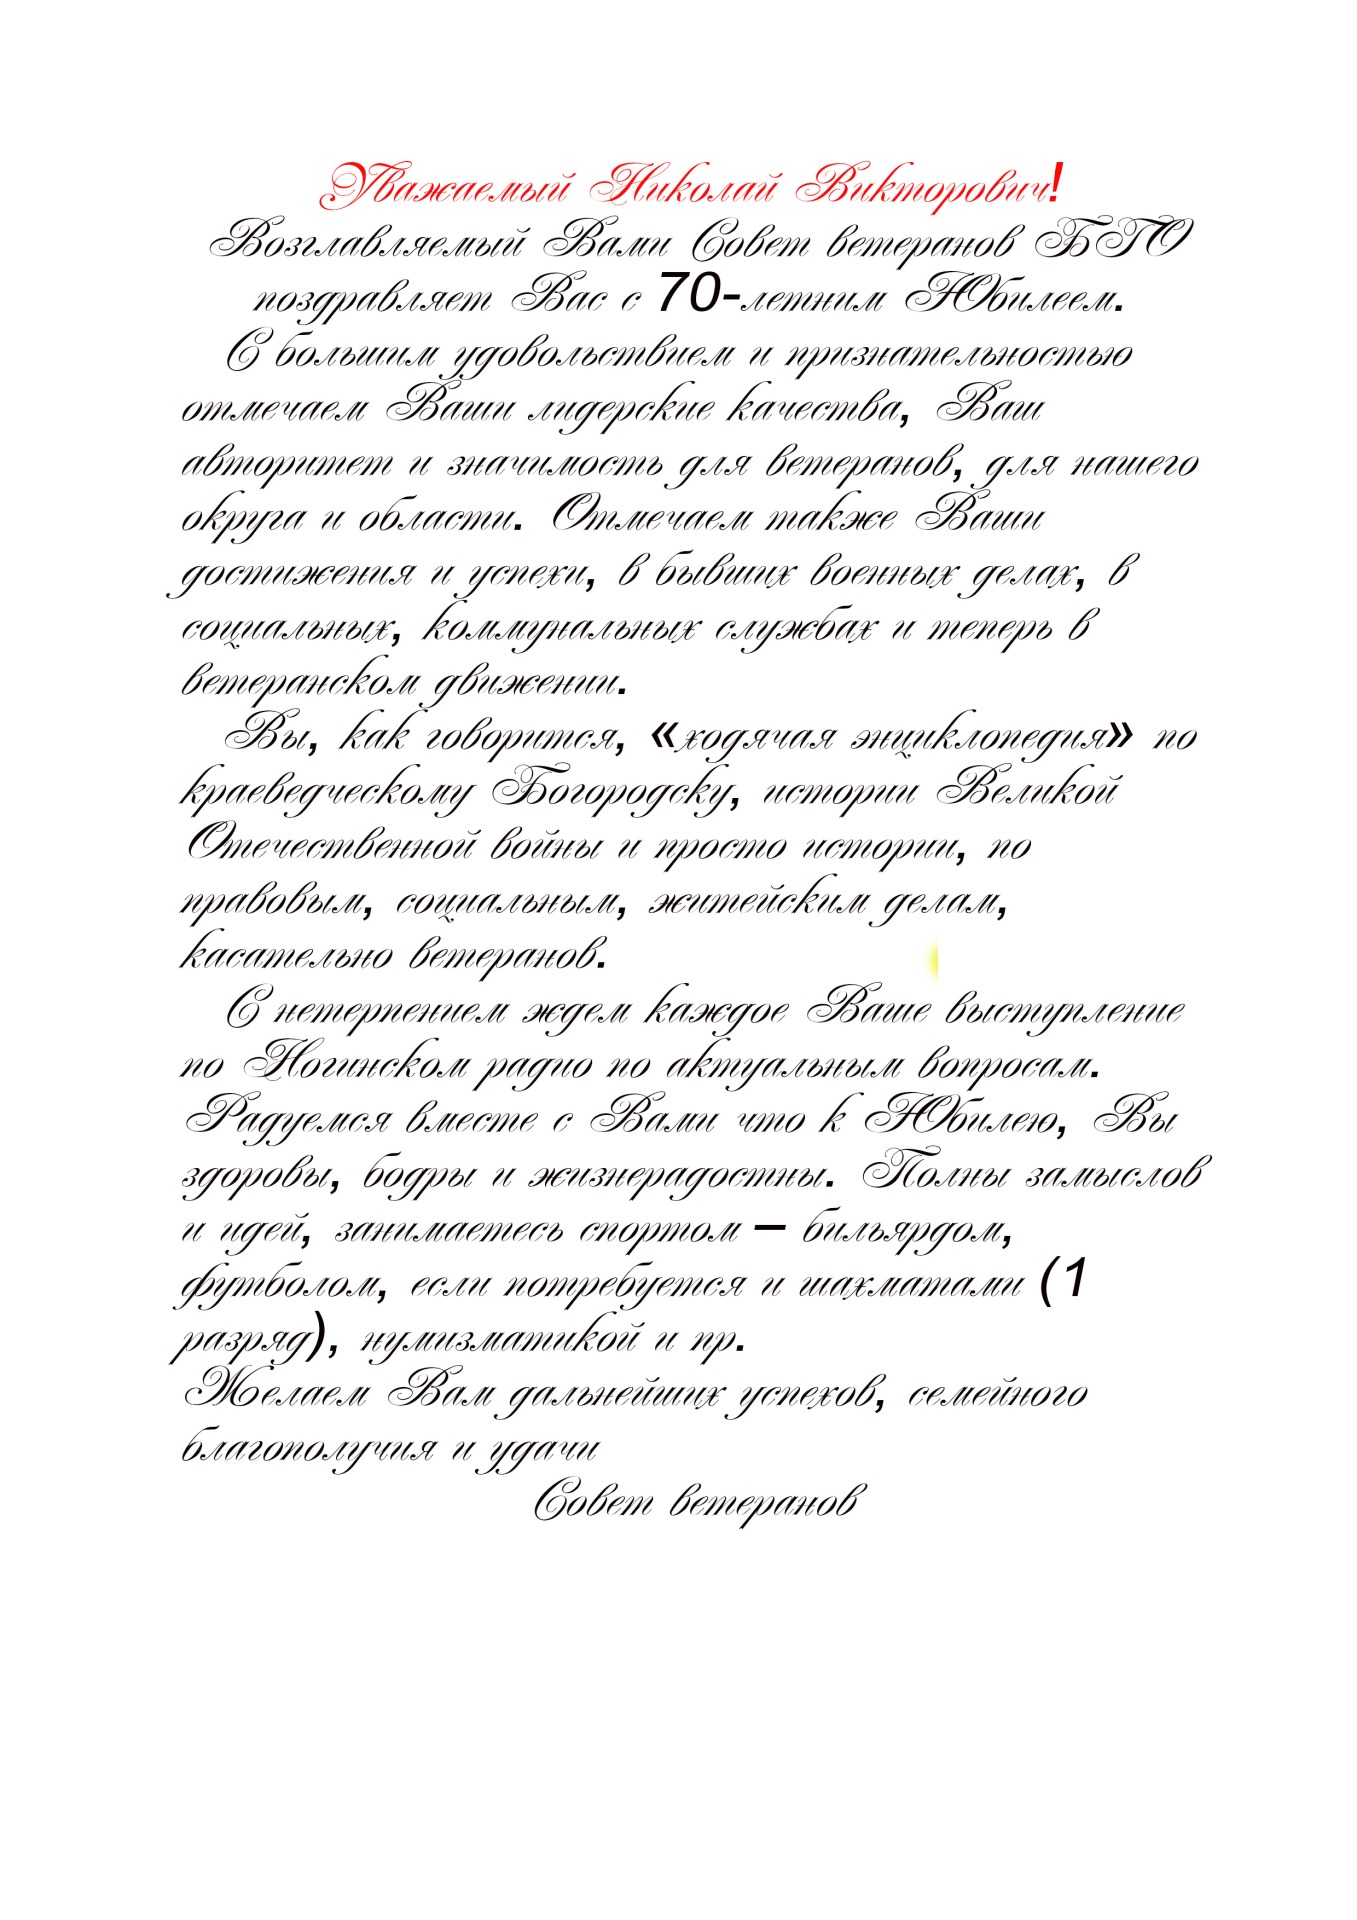 Уважаемый Николай Викторович!
Возглавляемый Вами Совет ветеранов БГО
поздравляет Вас с 70-летним Юбилеем.
С большим удовольствием и признательностью
отмечаем Ваши лидерские качества, Ваш
авторитет и значимость для ветеранов, для нашего
округа и области. Отмечаем также Ваши
достижения и успехи, в бывших военных делах, в
социальных, коммунальных службах и теперь в
ветеранском движении.
Вы, как говорится, «ходячая энциклопедия» по
краеведческому Богородску, истории Великой
Отечественной войны и просто истории, по
правовым, социальным, житейским делам,
касательно ветеранов.
С нетерпением ждем каждое Ваше выступление
по Ногинском радио по актуальным вопросам.
Радуемся вместе с Вами что к Юбилею, Вы
здоровы, бодры и жизнерадостны. Полны замыслов
и идей, занимаетесь спортом – бильярдом,
футболом, если потребуется и шахматами (1
разряд), нумизматикой и пр.
Желаем Вам дальнейших успехов, семейного
благополучия и удачи
Совет ветеранов